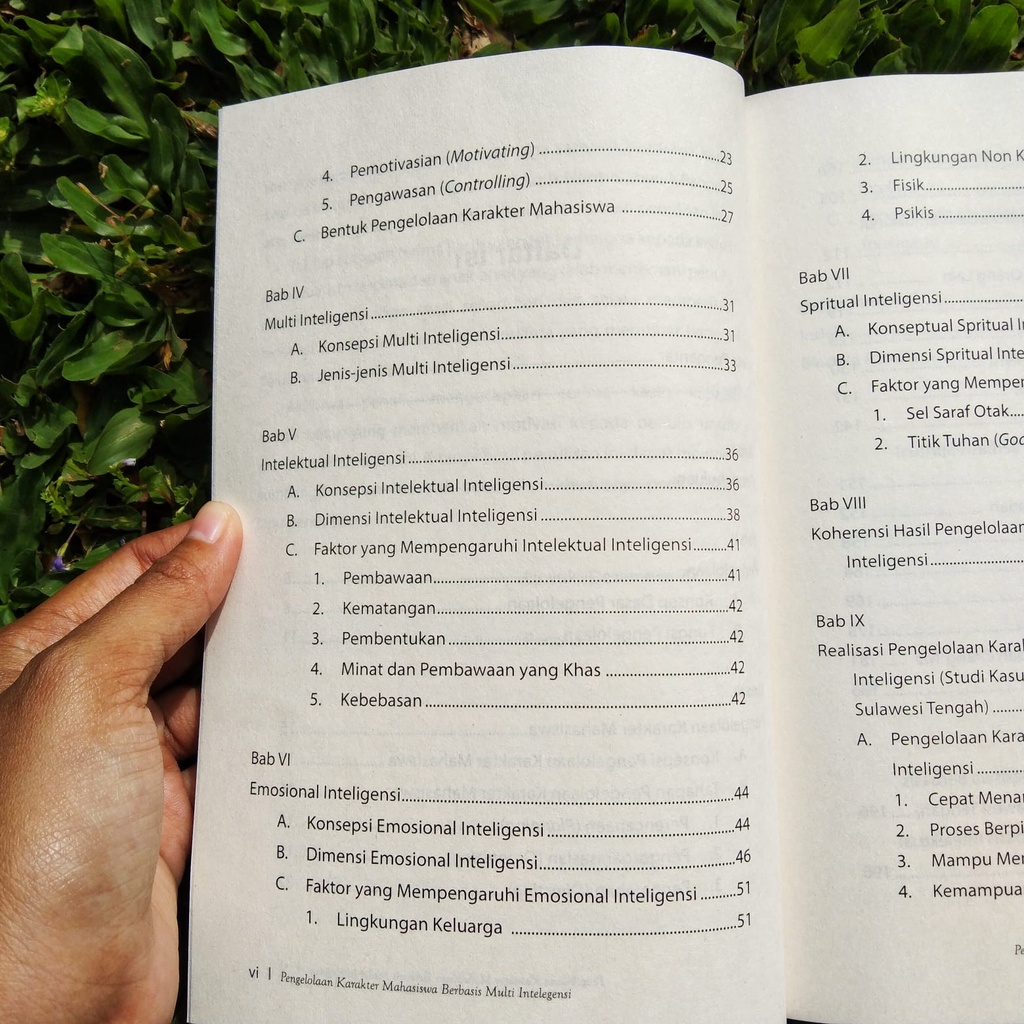 4. Pemotivasian (Motivating) ........ 23
5. Pengawasan (Controlling) ........ 25
C. Bentuk Pengelolaan Karakter Mahasiswa ........ 27
Bab IV
Multi Inteligensi ........ 31
A. Konsepsi Multi Inteligensi ........ 31
B. Jenis-jenis Multi Inteligensi ........ 33
Bab V
Intelektual Inteligensi ........ 36
A. Konsepsi Intelektual Inteligensi ........ 36
B. Dimensi Intelektual Inteligensi ........ 38
C. Faktor yang Mempengaruhi Intelektual Inteligensi ........ 41
1. Pembawaan ........ 41
2. Kematangan ........ 42
3. Pembentukan ........ 42
4. Minat dan Pembawaan yang Khas ........ 42
5. Kebebasan ........ 42
Bab VI
Emosional Inteligensi ........ 44
A. Konsepsi Emosional Inteligensi ........ 44
B. Dimensi Emosional Inteligensi ........ 46
C. Faktor yang Mempengaruhi Emosional Inteligensi ........ 51
1. Lingkungan Keluarga ........ 51
vi | Pengelolaan Karakter Mahasiswa Berbasis Multi Intelegensi
2. Lingkungan Non K
3. Fisik ........
4. Psikis ........
Bab VII
Spritual Inteligensi ........
A. Konseptual Spritual I
B. Dimensi Spritual Inte
C. Faktor yang Mempe
1. Sel Saraf Otak....
2. Titik Tuhan (Go
Bab VIII
Koherensi Hasil Pengelolaa
Inteligensi ........
Bab IX
Realisasi Pengelolaan Kara
Inteligensi (Studi Kasu
Sulawesi Tengah) ........
A. Pengelolaan Kara
Inteligensi ........
1. Cepat Mena
2. Proses Berpi
3. Mampu Me
4. Kemampua
Pe